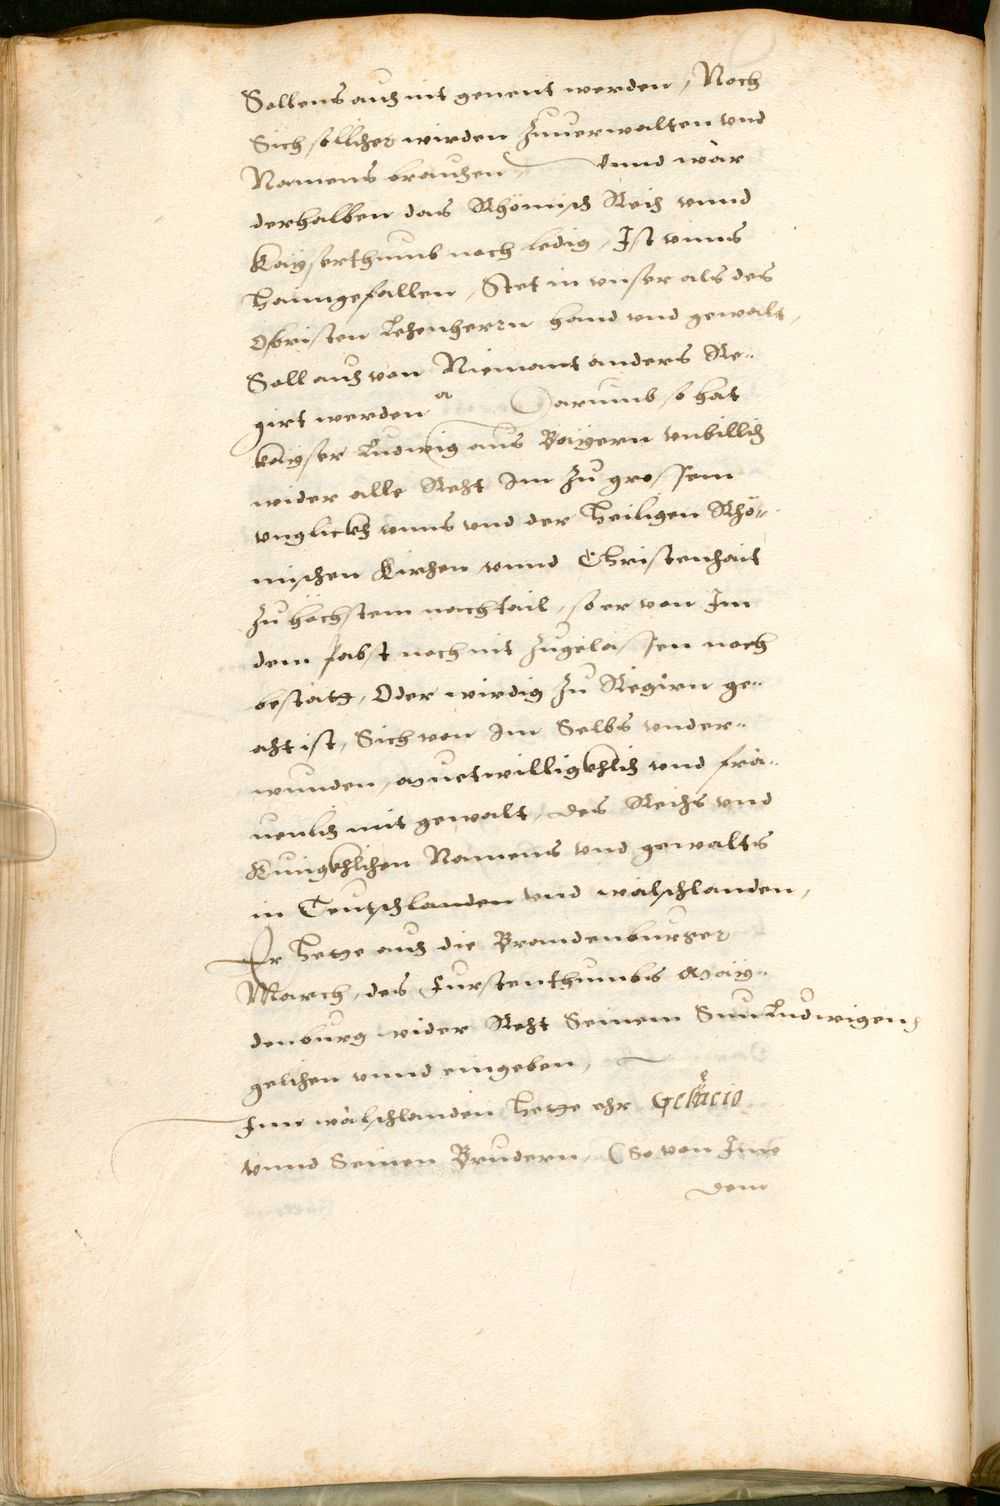 Sollens auch nit genent werden, Noch
Sich söllicher wirden Zuuerwalten vnd
Namens brauchen, Vnnd wär
derhalben das Rhömisch Reich vnnd
Kayserthumb noch ledig, Ist vnns
haimgefallen, Stet in vnser als des
Obristen Lehenherrn hand vnd gewalt,
Soll auch von Niemant anders Re-
girt werden Darumb so hat
kayser Ludwig aus Bayern vnbillich
wider alle Recht Im Zu grossem
vnglickh vnns vnd der Heiligen Rhö-
mischen Kirchen vnnd Christenhait
Zu höchstem nachtail, so er von Im
dem pabst noch nit Zugelassen noch
bestätt, Oder wirdig Zu Regirn ge-
acht ist, Sich von Im Selbs vnder-
wunden, muetwilligkhlich vnd frä-
uenlich mit gewalt, des Reichs vnd
Künigkhlichen Namens vnd gewalts
in Teutschlanden vnd wälschlanden,
Er Hette auch die Brandenburger
March, des Furstenthumbs May-
denburg wider Recht Seinem Sun Ludwigen
gelichen vnnd eingeben,
Inn wälschlanden Hette ehr
vnnd Seinen Brudern, (So von Ime
dem